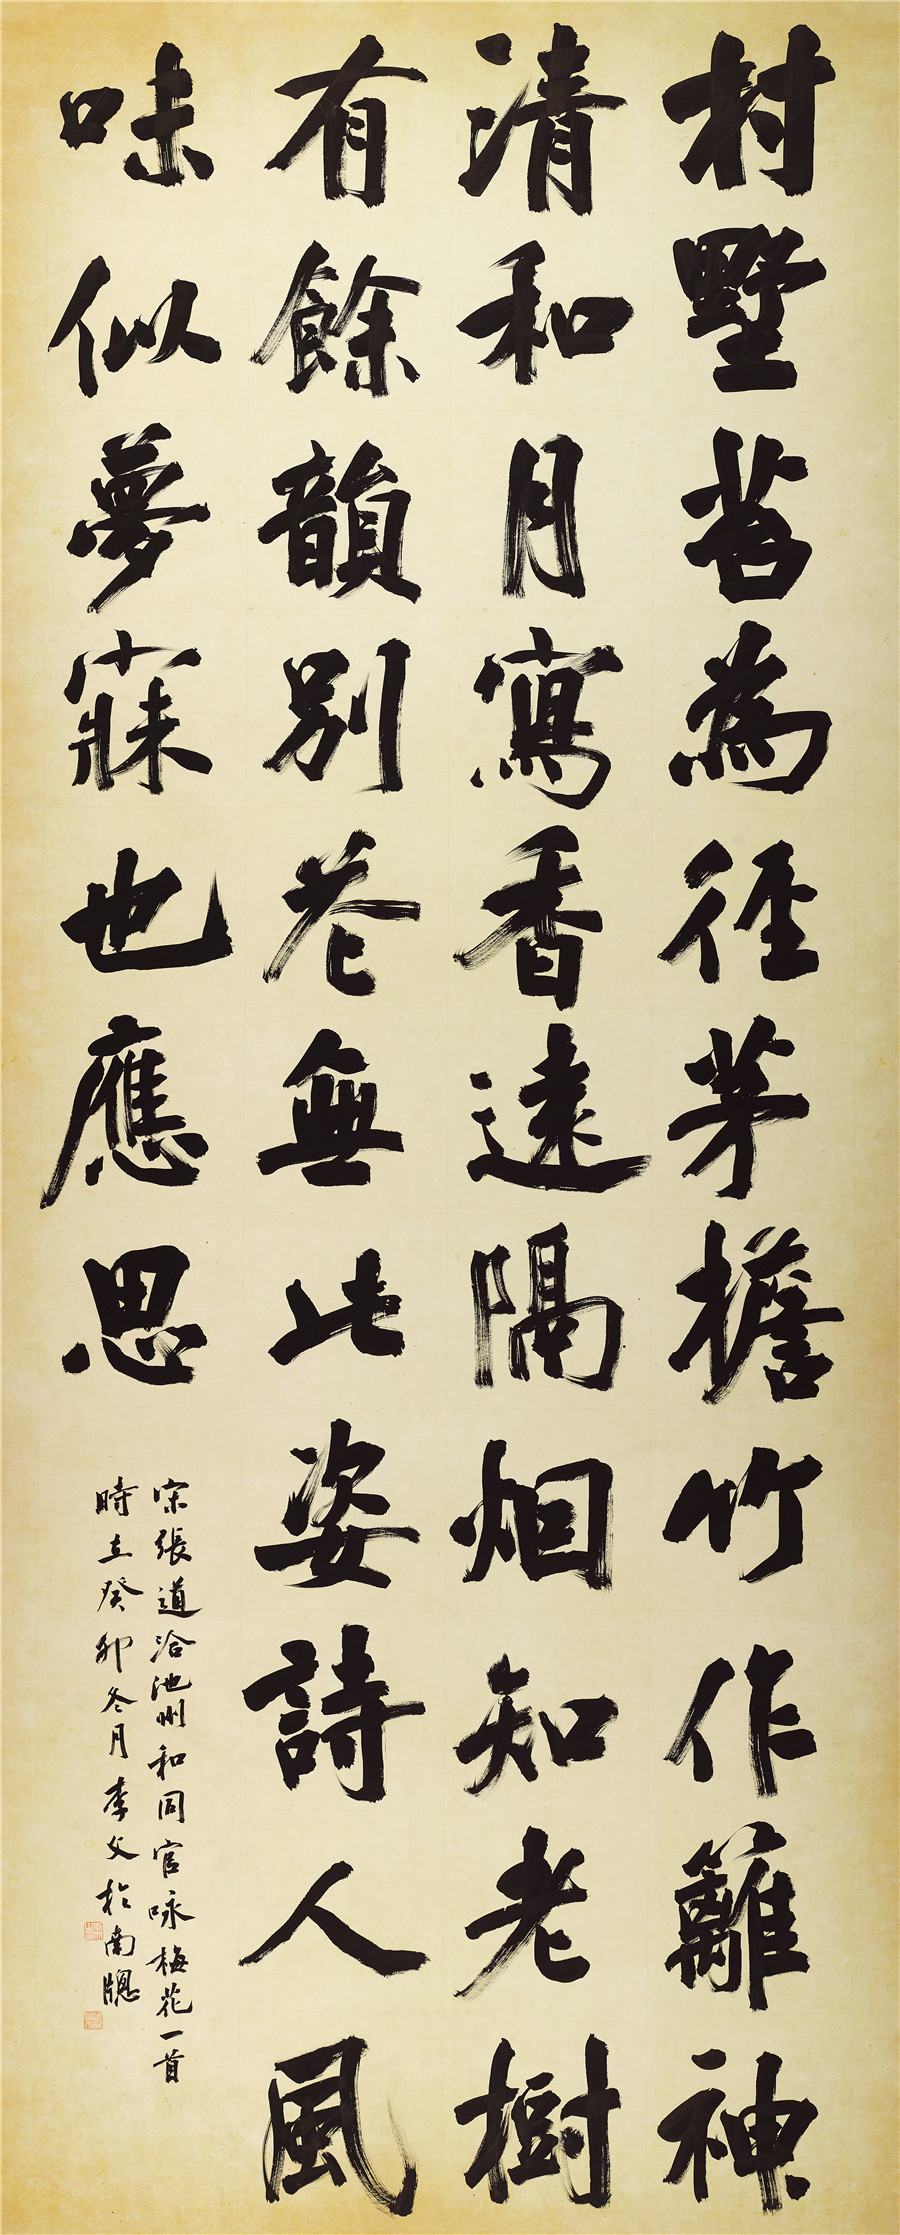 村墅苔為徑茅檐竹作籬神
清和月寫香遠隔烟知老樹
有餘韻別花無此姿詩人風
味似夢寐也應思
宋張道洽池州和同官咏梅花一首
時在癸卯冬月李文於南牕